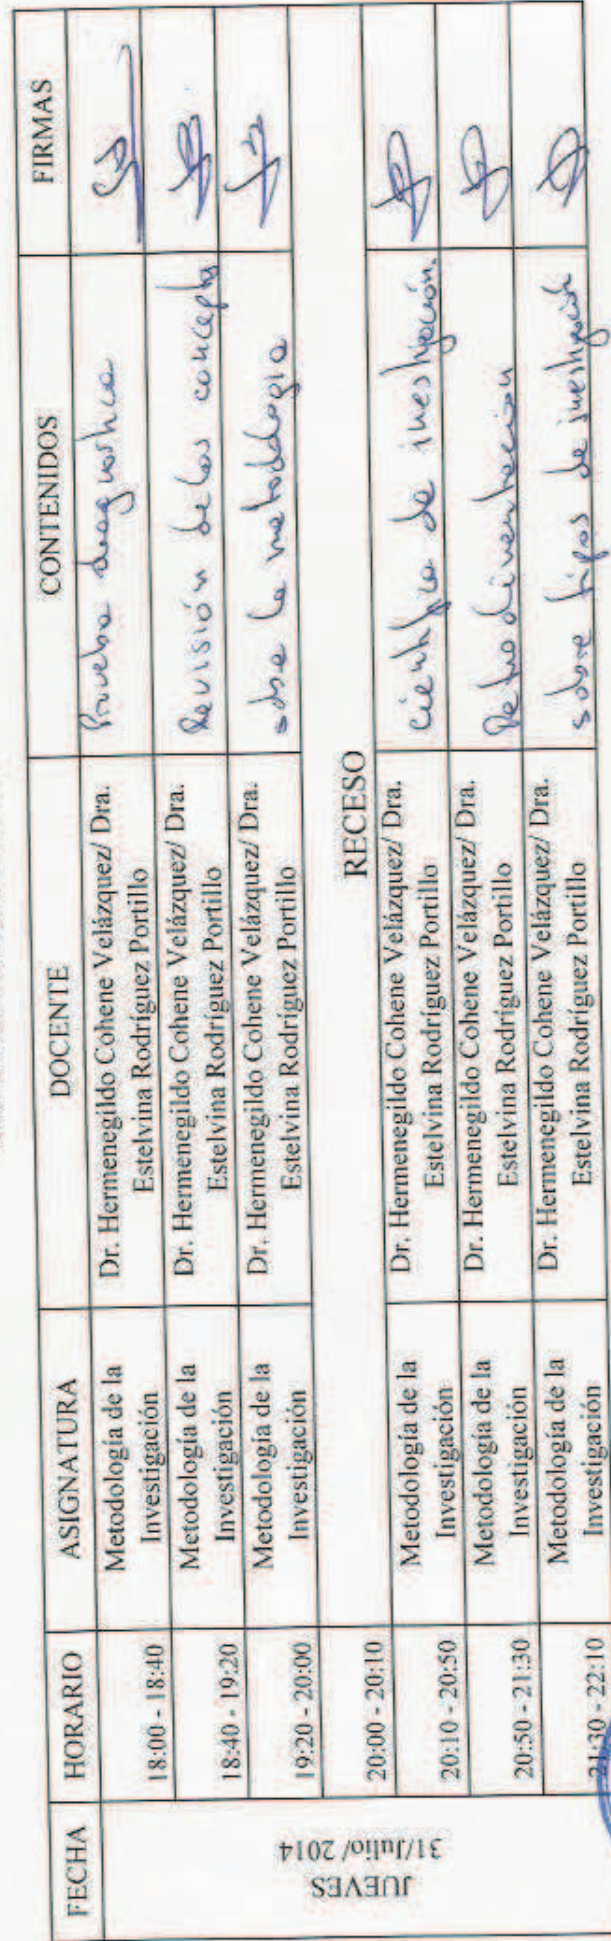 FECHA HORARIO ASIGNATURA DOCENTE CONTENIDOS FIRMAS
JUEVES
31/Julio/ 2014
18:00 - 18:40 Metodología de la Investigación Dr. Hermenegildo Cohene Velázquez/ Dra. Estelvina Rodríguez Portillo Prueba diagnostica
18:40 - 19:20 Metodología de la Investigación Dr. Hermenegildo Cohene Velázquez/ Dra. Estelvina Rodríguez Portillo Revisión de los concepto
19:20 - 20:00 Metodología de la Investigación Dr. Hermenegildo Cohene Velázquez/ Dra. Estelvina Rodríguez Portillo sobre la metodologia
20:00 - 20:10 RECESO
20:10 - 20:50 Metodología de la Investigación Dr. Hermenegildo Cohene Velázquez/ Dra. Estelvina Rodríguez Portillo cientifica de investigación.
20:50 - 21:30 Metodología de la Investigación Dr. Hermenegildo Cohene Velázquez/ Dra. Estelvina Rodríguez Portillo Retroalimentacion
21:30 - 22:10 Metodología de la Investigación Dr. Hermenegildo Cohene Velázquez/ Dra. Estelvina Rodríguez Portillo sobre tipos de investigación